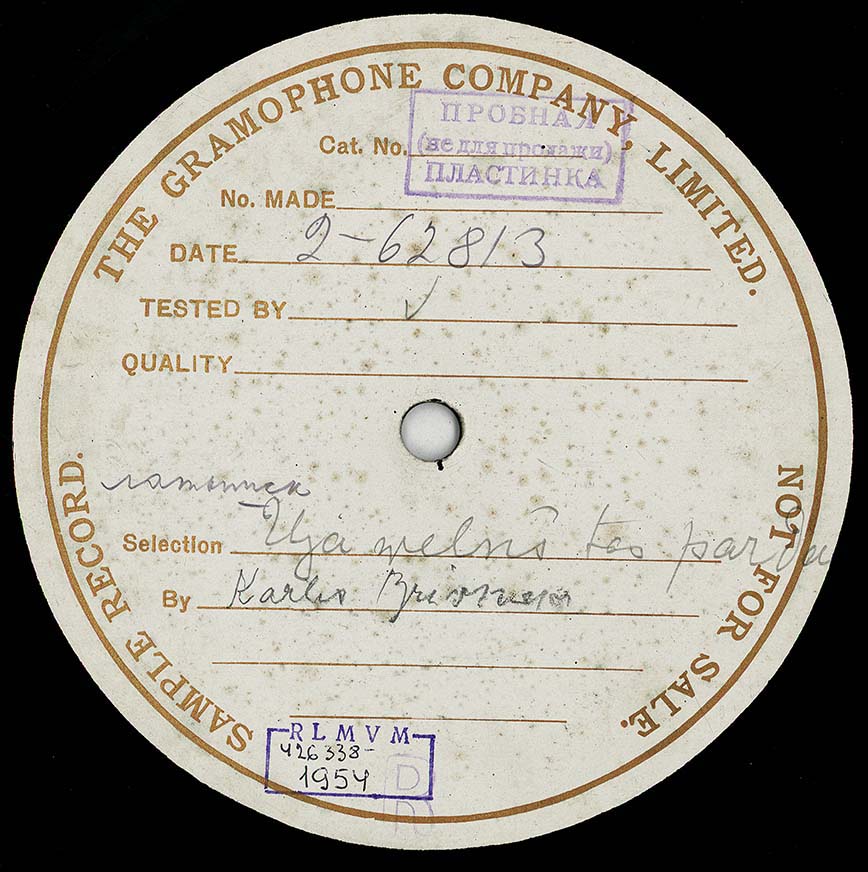 THE GRAMOPHONE COMPANY, LIMITED.
ПРОБНАЯ
Cat. No.
(не для продажи)
ПЛАСТИНКА
No. MADE
DATE 2-62813
TESTED BY ✓
QUALITY
Selection velns tas
By Karlis
SAMPLE RECORD.
NOT FOR SALE.
RLMVM
426338-
1954